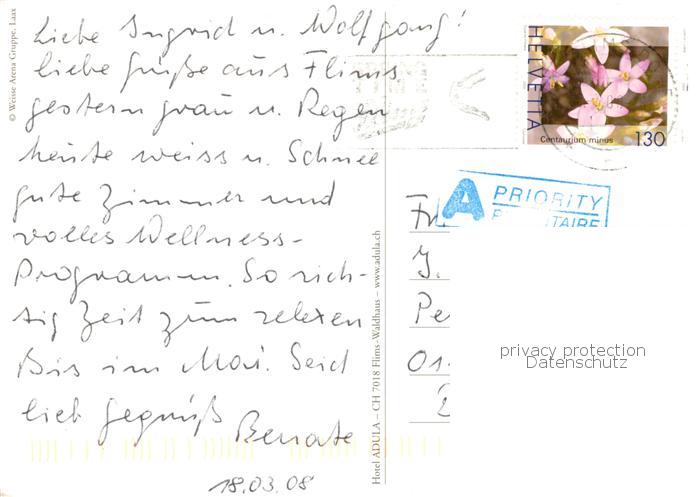 Liebe Ingrid u. Wolfgang!
liebe Grüße aus Flims
gestern grau u. Regen
heute weiss u. Schnee
gute Zimmer und
volles Wellness-
Programm. So rich-
tig Zeit zum relexen
Bis im Mai. Seid
lieb gegrüßt
Renate
18.03.08
© Weisse Arena Gruppe, Laax
Hotel ADULA – CH 7018 Flims-Waldhaus – www.adula.ch
HELVETIA
Centaurium minus
130
A PRIORITY
J.
Pe
01
privacy protection
Datenschutz